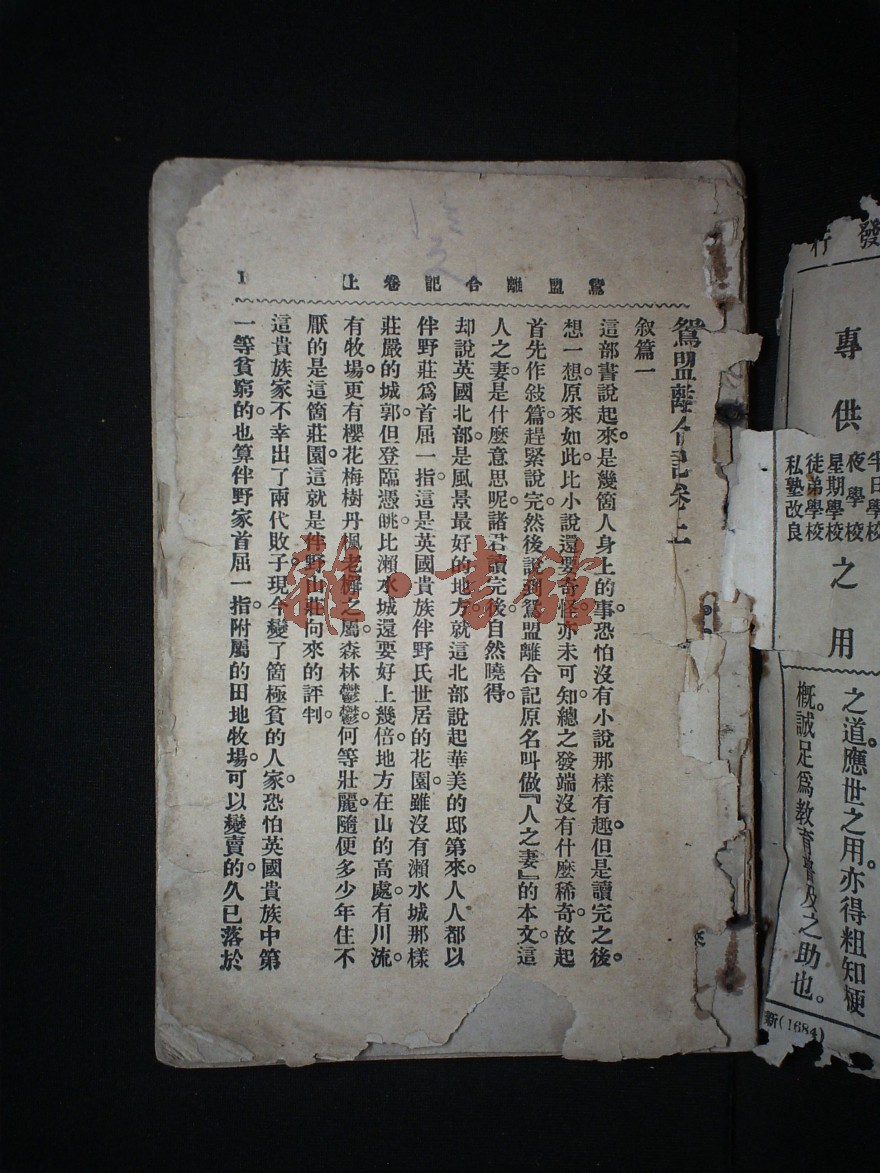 發行
專供
半日學校
夜學校
星期學校
徒弟學校
私塾改良
之用
之道應世之用。亦得粗知梗
概。誠足爲教育普及之助也。
新(1684)
鴛盟離合記卷上
1
鴛盟離合記卷上
叙篇一
這部書說起來。是幾箇人身上的事。恐怕沒有小說那樣有趣。但是讀完之後。
想一想。原來如此。比小說還要奇怪。亦未可知。總之發端沒有什麼稀奇。故起
首先作敍篇。趕緊說完。然後說到鴛盟離合記。原名叫做『人之妻』的本文。這
人之妻。是什麼意思呢。諸君讀完後。自然曉得。
却說英國北部。是風景最好的地方。就這北部說起華美的邸第來。人人都以
伴野莊爲首屈一指。這是英國貴族伴野氏世居的花園。雖沒有瀨水城那樣
莊嚴的城郭。但登臨憑眺。比瀨水城還要好上幾倍。地方在山的高處。有川流。
有牧場。更有櫻花梅樹丹楓老樨之屬。森林鬱鬱。何等壯麗。隨便多少年住不
厭的是這箇莊園。這就是伴野山莊向來的評判。
這貴族家不幸出了兩代敗子。現今變了箇極貧的人家。恐怕英國貴族中第
一等貧窮的。也算伴野家首屈一指。附屬的田地牧場。可以變賣的。久已落於
雜·書館